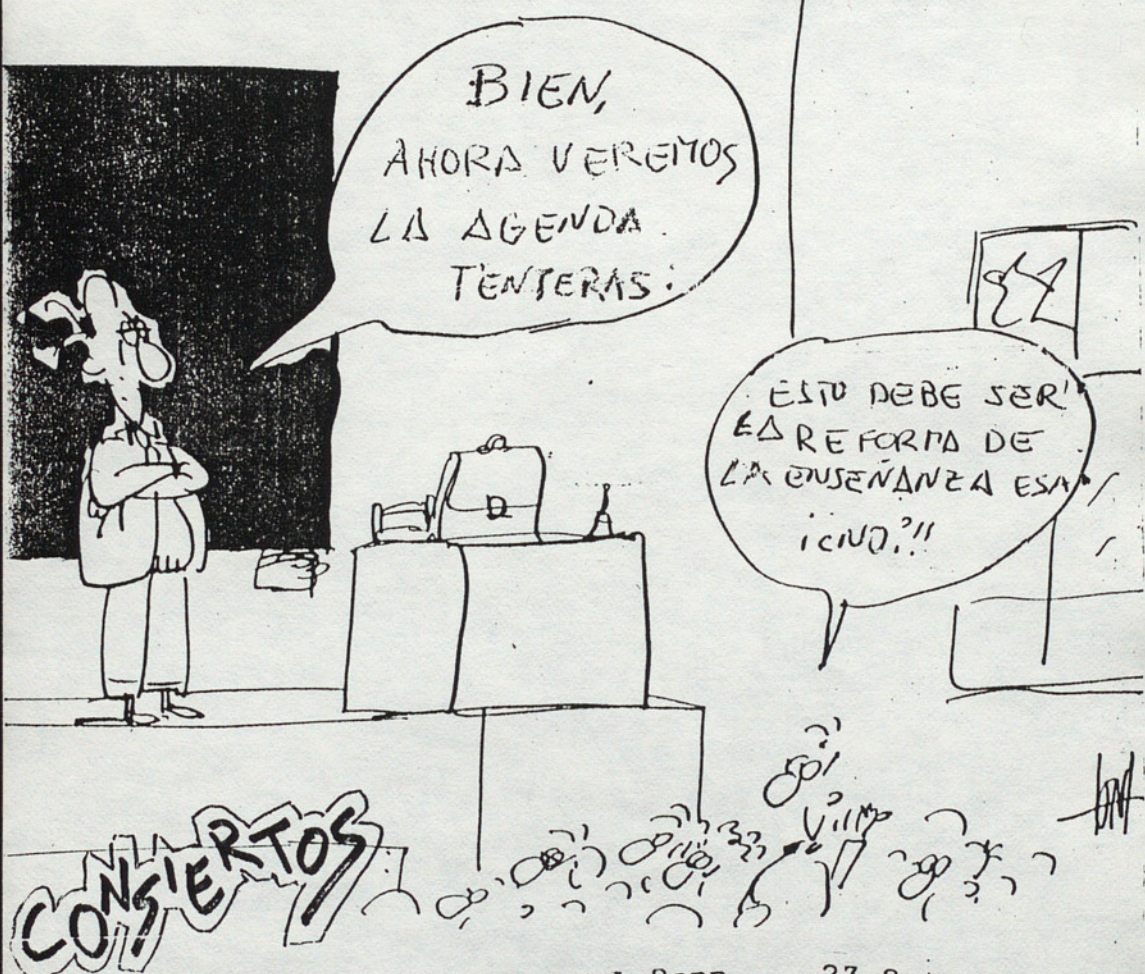 BIEN,
AHORA VEREMOS
LA AGENDA
TENTERAS.
ESTO DEBE SER
LA REFORMA DE
LA ENSEÑANZA ESA
¡¿NO?!!
CONSIERTOS
27